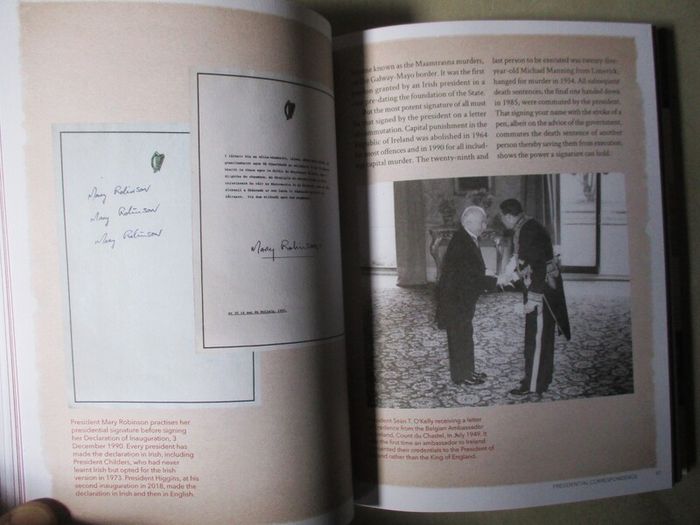 Mary Robinson
Mary Robinson
Mary Robinson
Mary Robinson
President Mary Robinson practises her
presidential signature before signing
her Declaration of Inauguration, 3
December 1990. Every president has
made the declaration in Irish, including
President Childers, who had never
learnt Irish but opted for the Irish
version in 1973. President Higgins, at his
second inauguration in 2018, made the
declaration in Irish and then in English.
known as the Maamtrasna murders,
Galway-Mayo border. It was the first
granted by an Irish president in a
pre-dating the foundation of the State.
But the most potent signature of all must
that signed by the president on a letter
commutation. Capital punishment in the
Republic of Ireland was abolished in 1964
most offences and in 1990 for all includ-
capital murder. The twenty-ninth and
last person to be executed was twenty-five-
year-old Michael Manning from Limerick,
hanged for murder in 1954. All subsequent
death sentences, the final one handed down
in 1985, were commuted by the president.
That signing your name with the stroke of a
pen, albeit on the advice of the government,
commutes the death sentence of another
person thereby saving them from execution,
shows the power a signature can hold.
Seán T. O'Kelly receiving a letter
credence from the Belgian Ambassador
Ireland, Count du Chastel, in July 1949. It
the first time an ambassador to Ireland
their credentials to the President of
and rather than the King of England.
PRESIDENTIAL CORRESPONDENCE